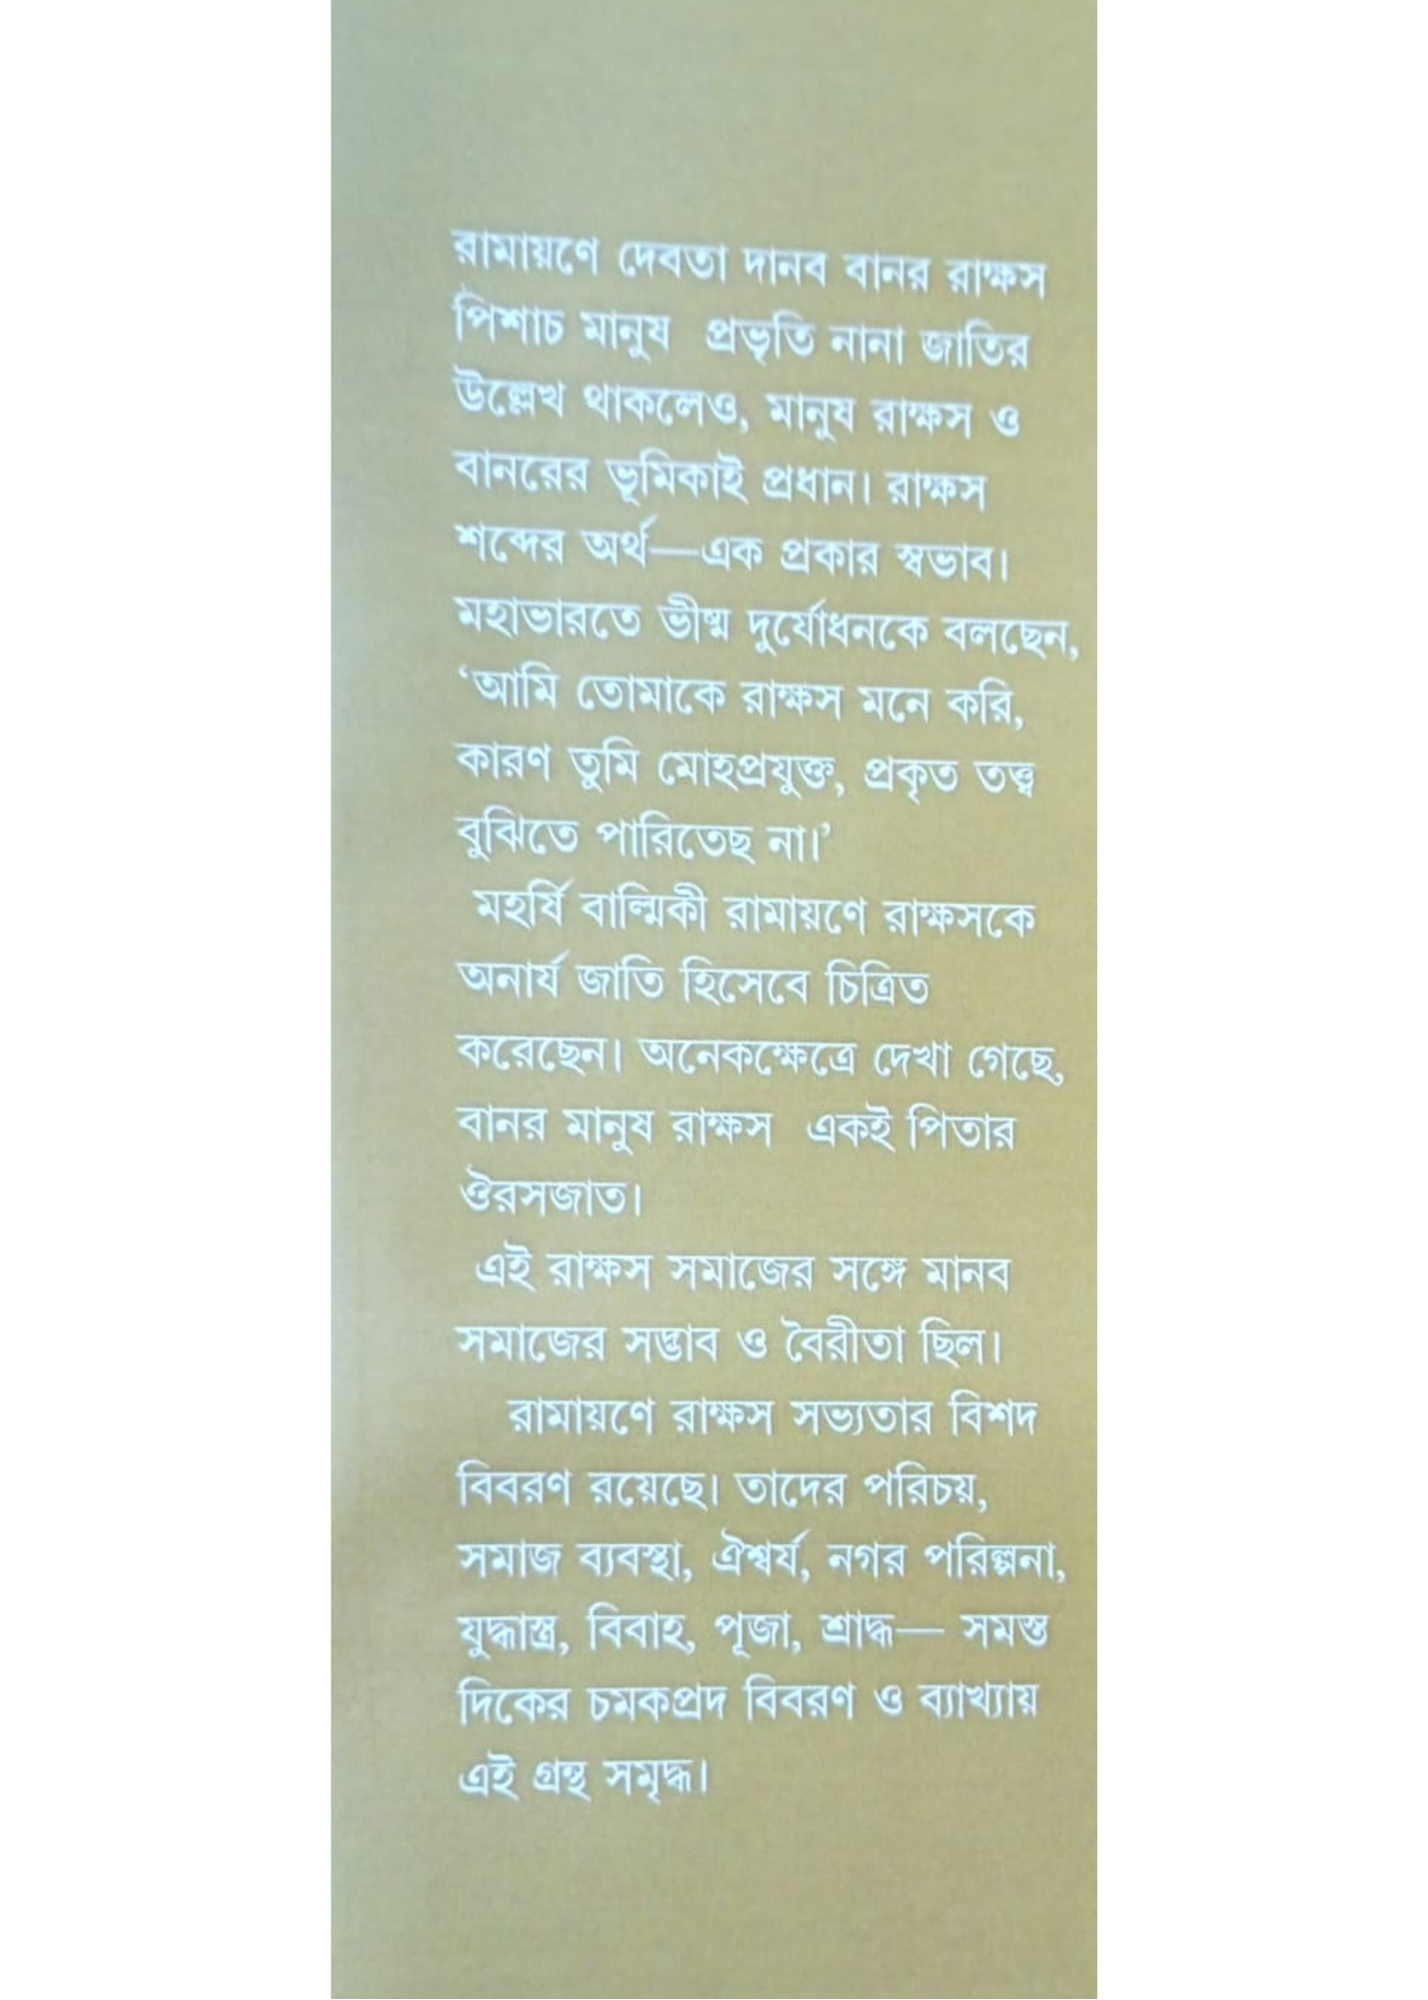 রামায়ণে দেবতা দানব বানর রাক্ষস
পিশাচ মানুষ প্রভৃতি নানা জাতির
উল্লেখ থাকলেও, মানুষ রাক্ষস ও
বানরের ভূমিকাই প্রধান। রাক্ষস
শব্দের অর্থ—এক প্রকার স্বভাব।
মহাভারতে ভীষ্ম দুর্যোধনকে বলছেন,
‘আমি তোমাকে রাক্ষস মনে করি,
কারণ তুমি মোহপ্রযুক্ত, প্রকৃত তত্ত্ব
বুঝিতে পারিতেছ না।’
মহর্ষি বাল্মিকী রামায়ণে রাক্ষসকে
অনার্য জাতি হিসেবে চিত্রিত
করেছেন। অনেকক্ষেত্রে দেখা গেছে,
বানর মানুষ রাক্ষস একই পিতার
ঔরসজাত।
এই রাক্ষস সমাজের সঙ্গে মানব
সমাজের সদ্ভাব ও বৈরীতা ছিল।
রামায়ণে রাক্ষস সভ্যতার বিশদ
বিবরণ রয়েছে। তাদের পরিচয়,
সমাজ ব্যবস্থা, ঐশ্বর্য, নগর পরিল্পনা,
যুদ্ধাস্ত্র, বিবাহ, পূজা, শ্রাদ্ধ— সমস্ত
দিকের চমকপ্রদ বিবরণ ও ব্যাখ্যায়
এই গ্রন্থ সমৃদ্ধ।